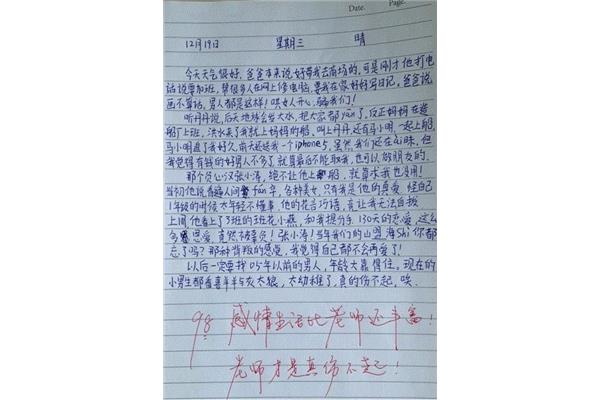 Date.  Page.
12月19日 星期三 晴
今天天气很好，爸爸本来说好带我去商场的，可是刚才他打电
话说要加班，帮很多人在网上修电脑，要我在家好好写日记，爸爸说
画不算话，男人都是这样！哄女人开心，骗我们！
听丹丹说，后天地球会发大水，把大家都yān了，反正妈妈在造
船厂上班，洪水来了我就上妈妈的船，叫上丹丹，还有马小明，一起上船，
马小明追了我好久，前天还送我一个iphone5，虽然我们还在ài昧，但
我觉得有钱的好男人不多了，就算最后不能取我，也可以做朋友的。
那个负心汉张小涛，绝不让他上船，就算求我也没用！
当初他说看遍人间繁fán华，各种美女，只有我是他的真爱，怪自己
1年级的时候太年轻不懂事，他的花言巧语，竟让我无法自拔
上周他看上了3班的班花小燕，和我提分手，130天的恋爱，这么
多恩爱，竟然被辜负！张小涛！当年我们的山盟海shì你都
忘了吗？那种背叛的感觉，我觉得自己都不会再爱了！
以后一定要找05年以前的男人，年龄大靠得住。现在的
小男生都看喜羊羊与灰太狼，太幼稚了，真的伤不起，唉。
98 感情生活比老师还丰富！
老师才是真伤不起！